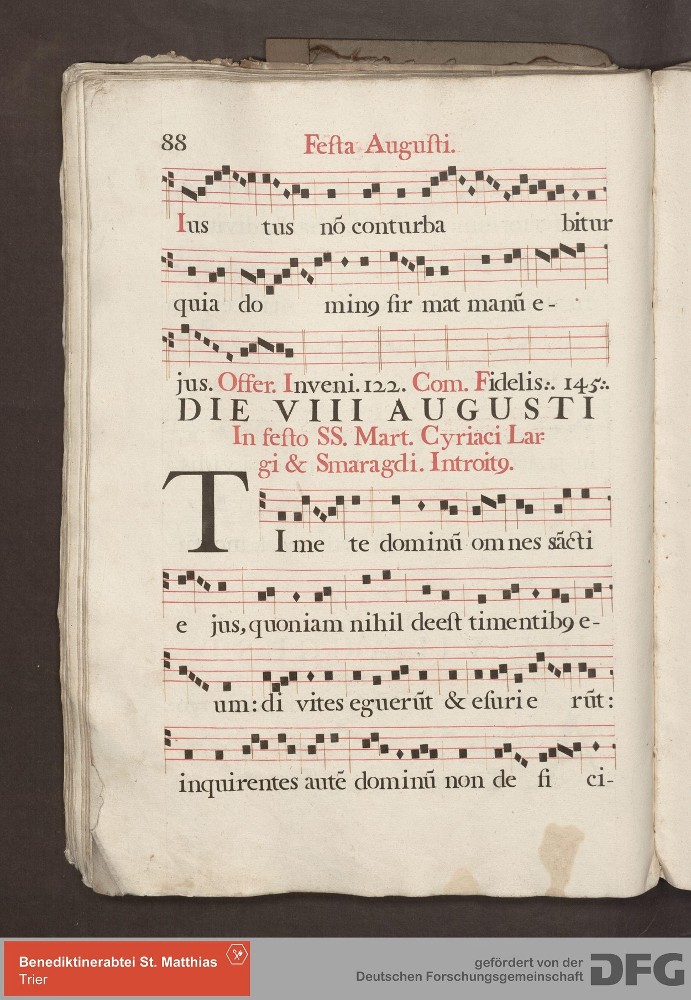 88 Feſta Auguſti.
Ius tus nō conturba bitur
quia do minꝯ fir mat manū e-
jus. Offer. Inveni. 122. Com. Fidelis:. 145:.
DIE VIII AUGUSTI
In feſto SS. Mart. Cyriaci Lar-
gi & Smaragdi. Introitꝯ.
TIme te dominū omnes sāɕti
e jus, quoniam nihil deeſt timentibꝯ e-
um: di vites eguerūt & eſuri e rūt:
inquirentes autē dominū non de fi ci-
Benediktinerabtei St. Matthias
Trier
gefördert von der
Deutschen Forschungsgemeinschaft DFG